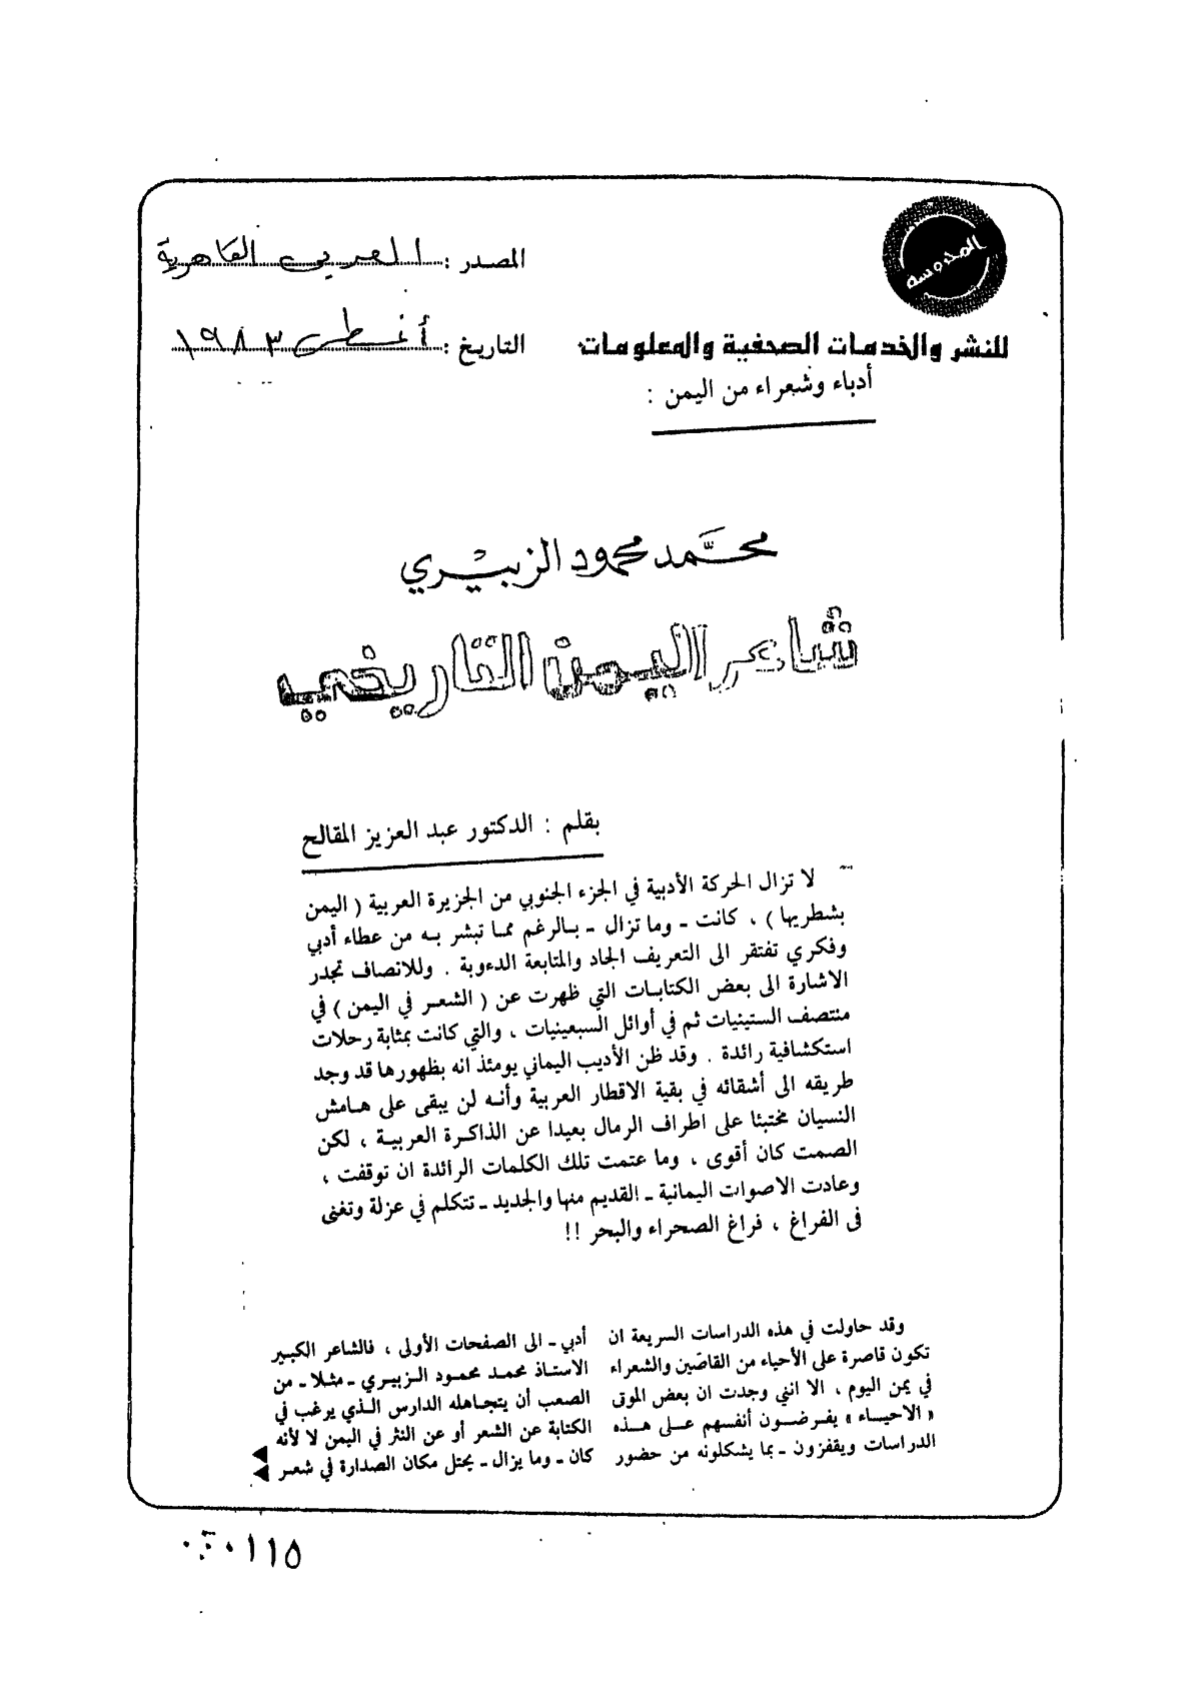 المحروسة
للنشر والخدمات الصحفية والمعلومات
المصدر : العربي القاهرية
التاريخ : أغسطس ١٩٨٣
أدباء وشعراء من اليمن :
محمَّد محمود الزبيْري
شاعر اليمن التاريخي
بقلم : الدكتور عبد العزيز المقالح
لا تزال الحركة الأدبية في الجزء الجنوبي من الجزيرة العربية ( اليمن
بشطريها ) ، كانت ـ وما تزال ـ بالرغم مما تبشر به من عطاء أدبي
وفكري تفتقر الى التعريف الجاد والمتابعة الدءوبة . وللانصاف تجدر
الاشارة الى بعض الكتابات التي ظهرت عن ( الشعر في اليمن ) في
منتصف الستينيات ثم في أوائل السبعينيات ، والتي كانت بمثابة رحلات
استكشافية رائدة . وقد ظن الأديب اليماني يومئذ انه بظهورها قد وجد
طريقه الى أشقائه في بقية الاقطار العربية وأنه لن يبقى على هامش
النسيان مختبئا على اطراف الرمال بعيدا عن الذاكرة العربية ، لكن
الصمت كان أقوى ، وما عتمت تلك الكلمات الرائدة ان توقفت ،
وعادت الاصوات اليمانية ـ القديم منها والجديد ـ تتكلم في عزلة وتغنى
فى الفراغ ، فراغ الصحراء والبحر !!
وقد حاولت في هذه الدراسات السريعة ان
تكون قاصرة على الأحياء من القاصّين والشعراء
في يمن اليوم ، الا انني وجدت ان بعض الموتى
« الاحياء » يفرضون أنفسهم على هذه
الدراسات ويقفزون ـ بما يشكلونه من حضور
أدبي ـ الى الصفحات الأولى ، فالشاعر الكبير
الاستاذ محمد محمود الزبيري ـ مثلا ـ من
الصعب أن يتجاهله الدارس الذي يرغب في
الكتابة عن الشعر أو عن النثر في اليمن لا لأنه
كان ـ وما يزال ـ يحتل مكان الصدارة في شعر